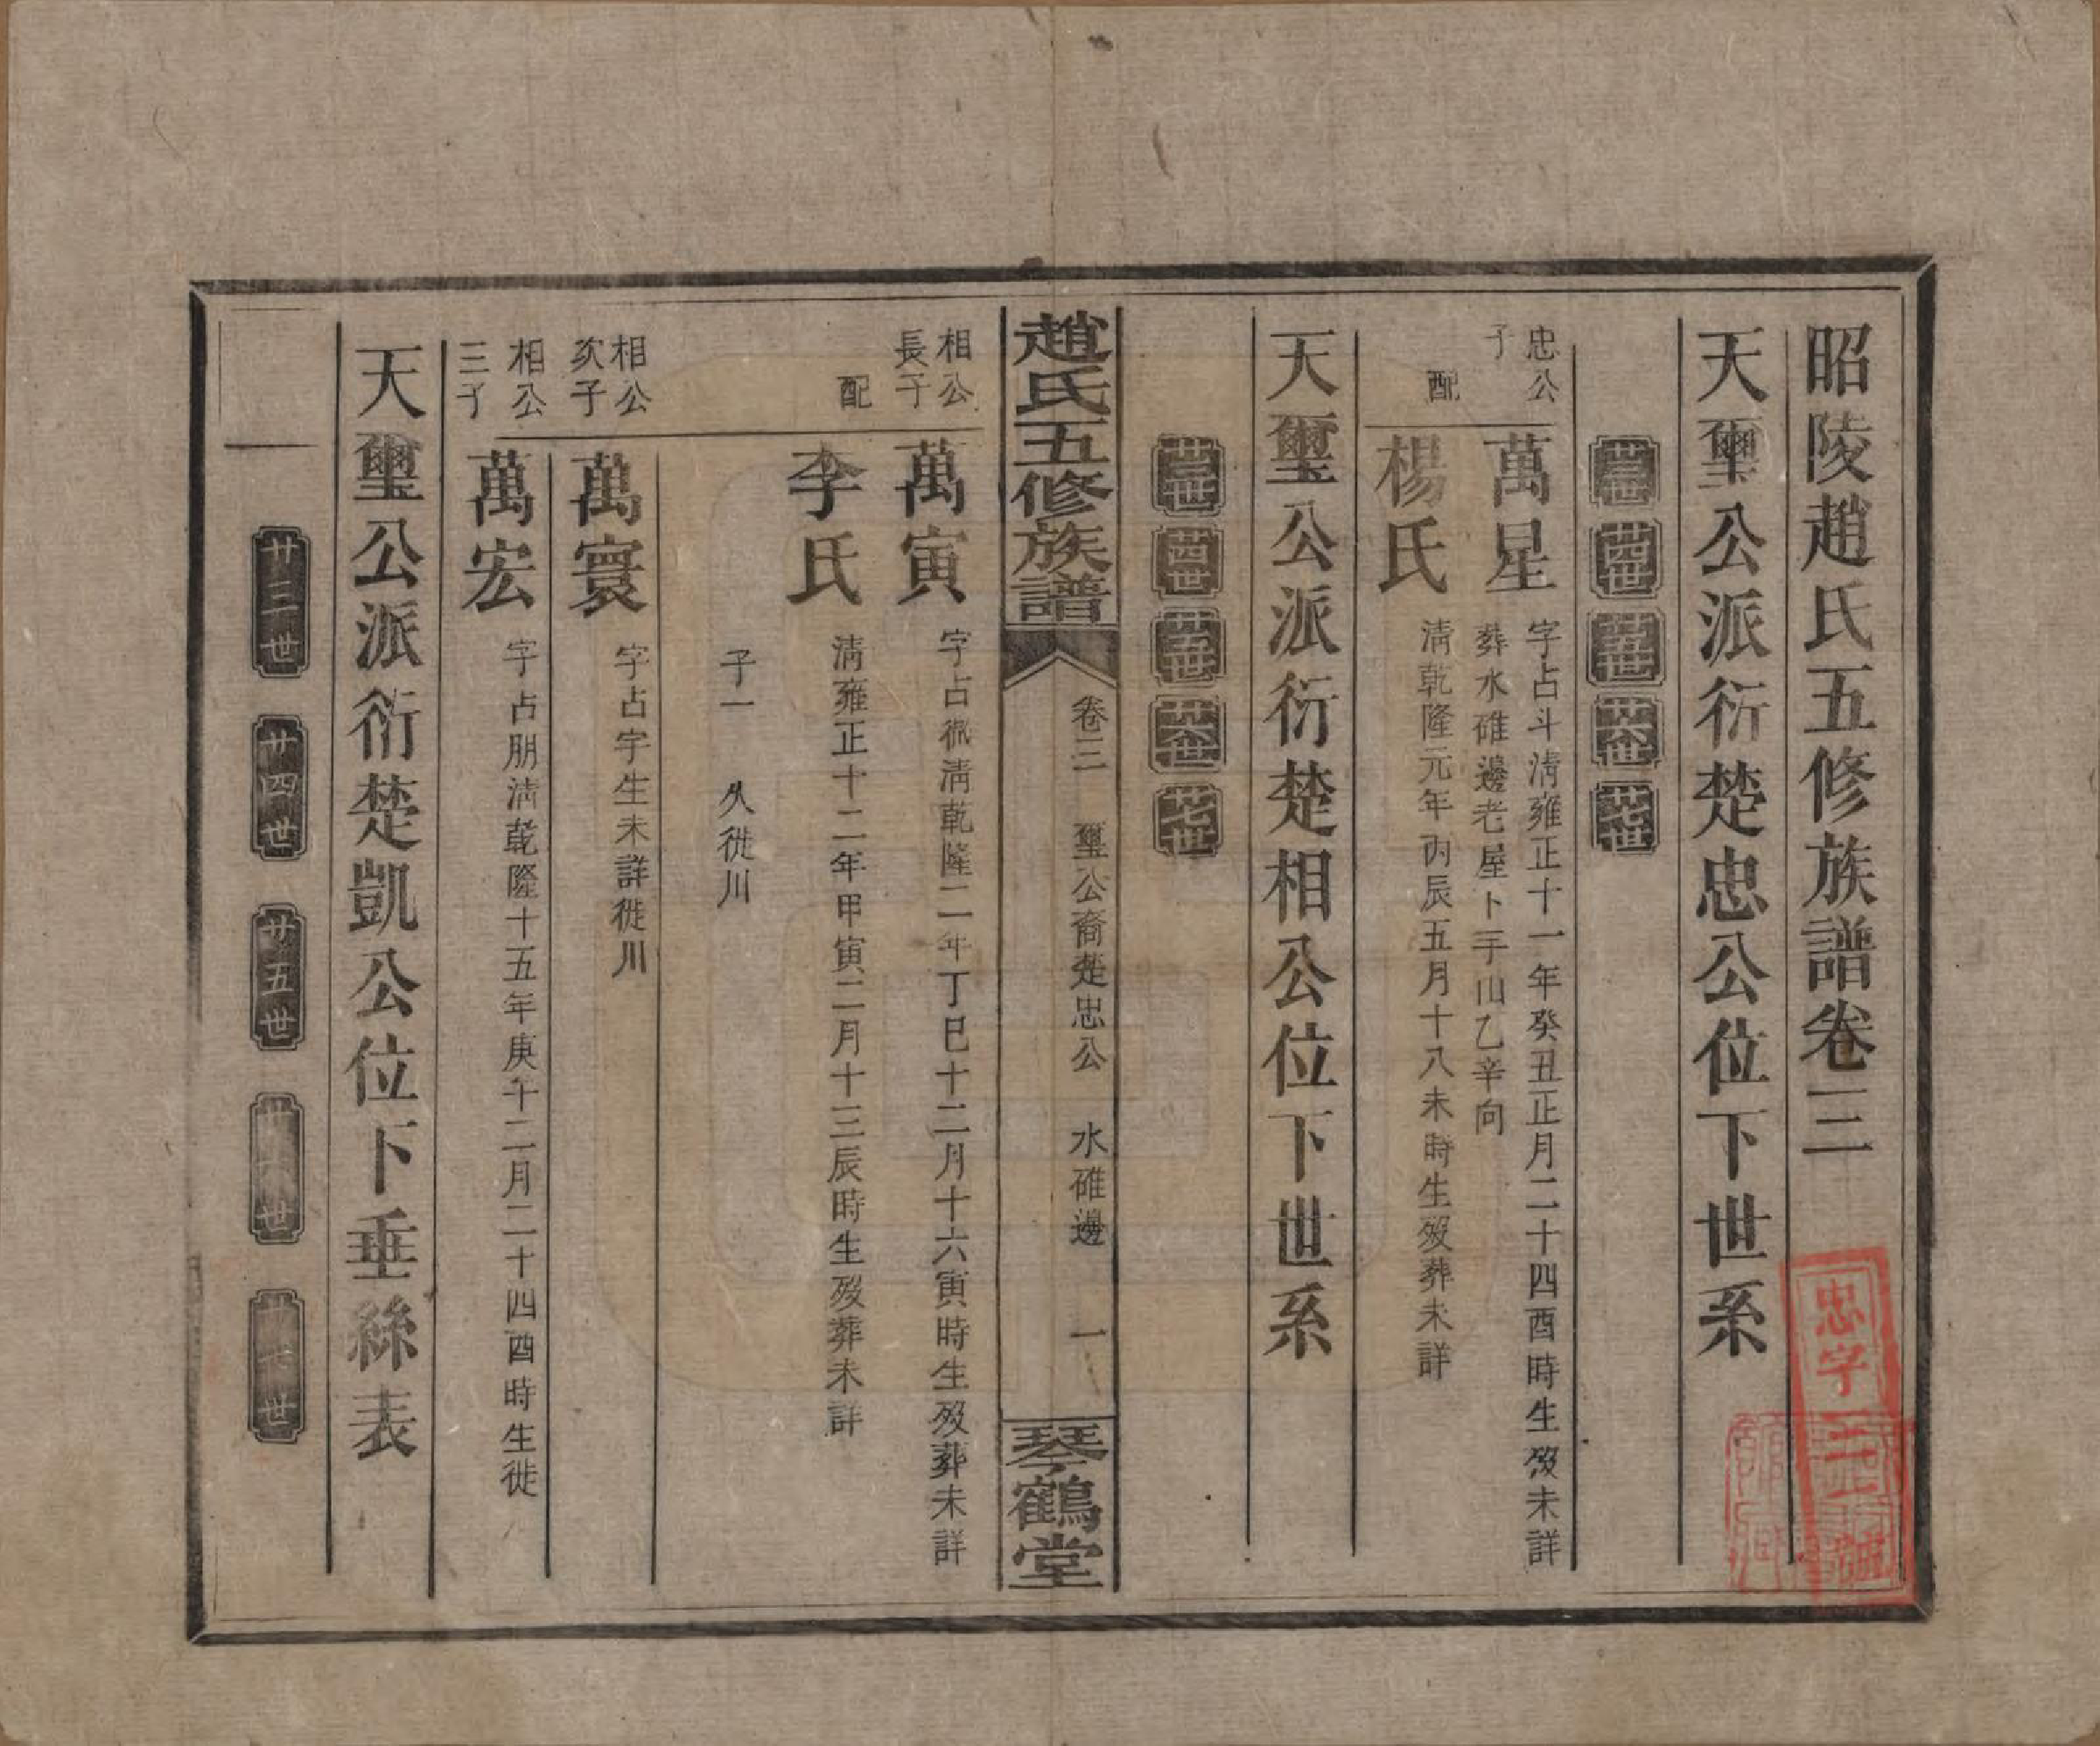 昭陵趙氏五修族譜卷三
天璽公派衍楚忠公位下世系
廿三世 廿四世 廿五世 廿六世 廿七世
忠公
子
萬星
字占斗淸雍正十一年癸丑正月二十四酉時生歿未詳
葬水碓邊老屋卜手山乙辛向
配
楊氏
淸乾隆元年丙辰五月十八未時生歿葬未詳
天璽公派衍楚相公位下世系
廿三世 廿四世 廿五世 廿六世 廿七世
趙氏五修族譜
卷三 璽公裔楚忠公 水碓邊 一
琴鶴堂
相公
長子
萬寅
字占微淸乾隆二年丁巳十二月十六寅時生歿葬未詳
配
李氏
淸雍正十二年甲寅二月十三辰時生歿葬未詳
子一 久徙川
相公
次子
萬寰
字占宇生未詳徙川
相公
三子
萬宏
字占朋淸乾隆十五年庚午二月二十四酉時生徙
天璽公派衍楚凱公位下垂絲表
廿三世 廿四世 廿五世 廿六世 廿七世
忠字